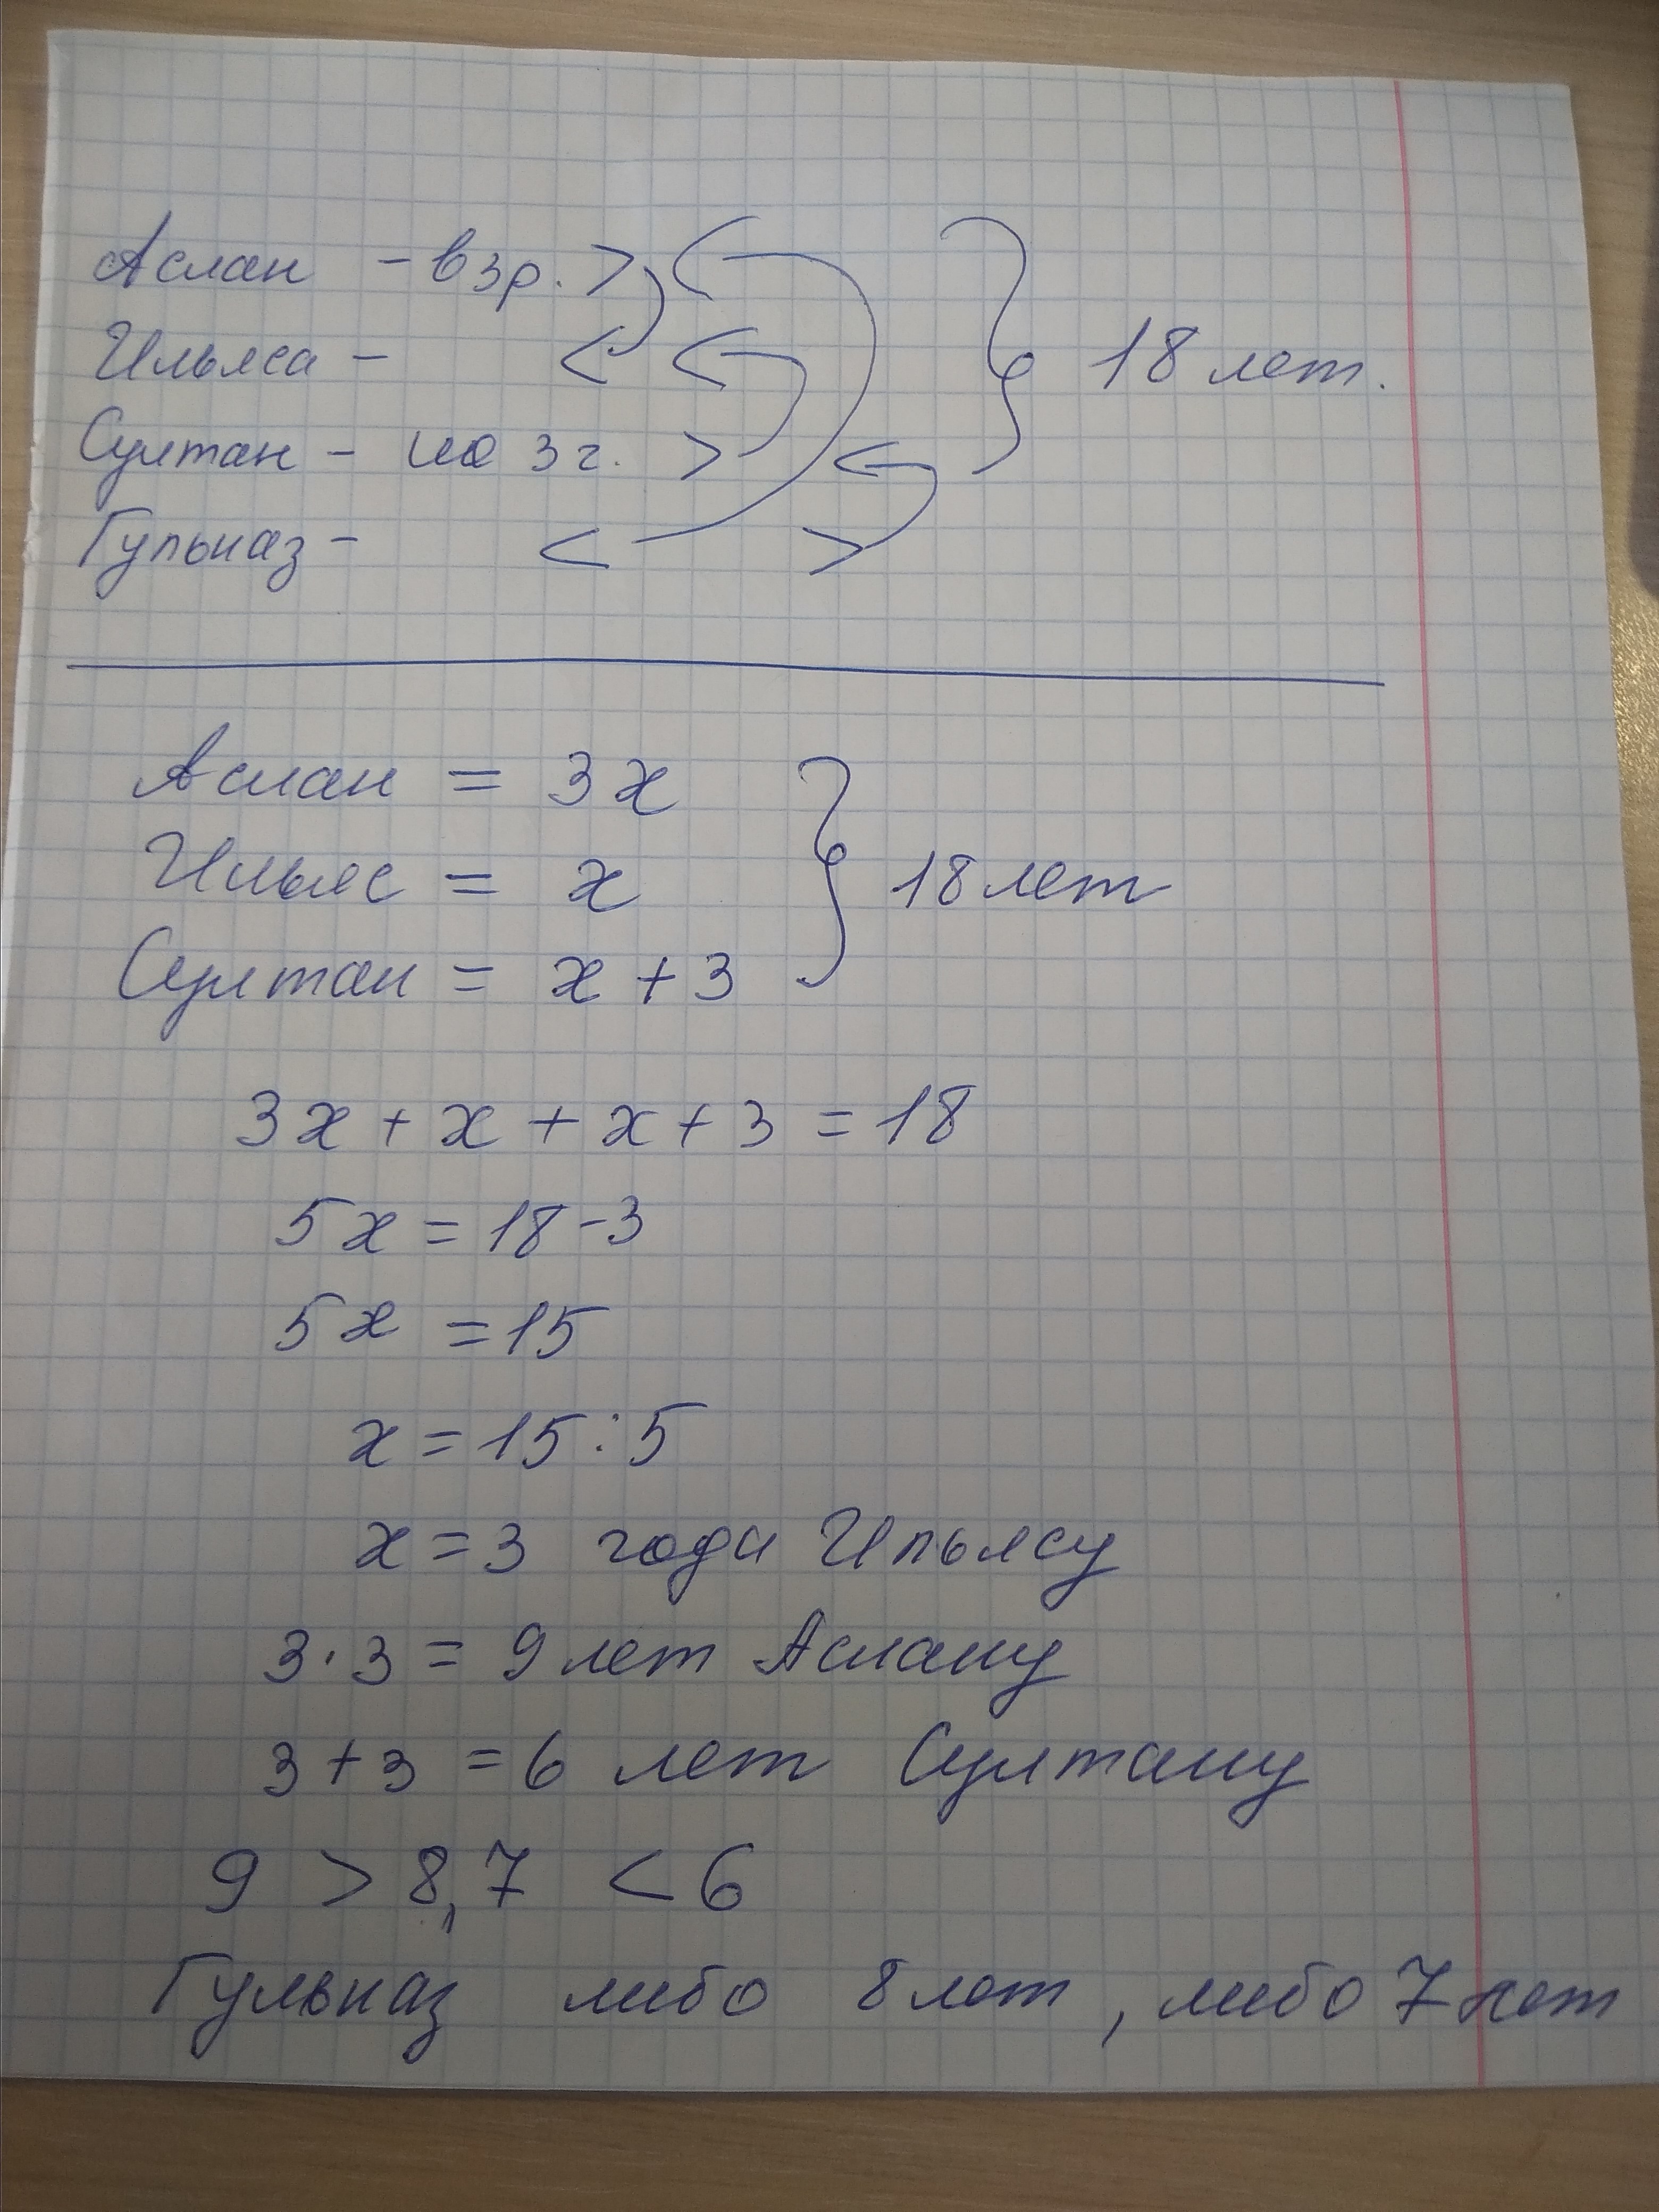 Аслан - взр. > <
Ильяса - < < } 18 лет.
Султан - на 3 г. > <
Гульназ - < >
Аслан = 3x
Ильяс = x } 18 лет
Султан = x + 3
3x + x + x + 3 = 18
5x = 18 - 3
5x = 15
x = 15 : 5
x = 3 года Ильясу
3 · 3 = 9 лет Аслану
3 + 3 = 6 лет Султану
9 > 8,7 < 6
Гульназ либо 8 лет, либо 7 лет